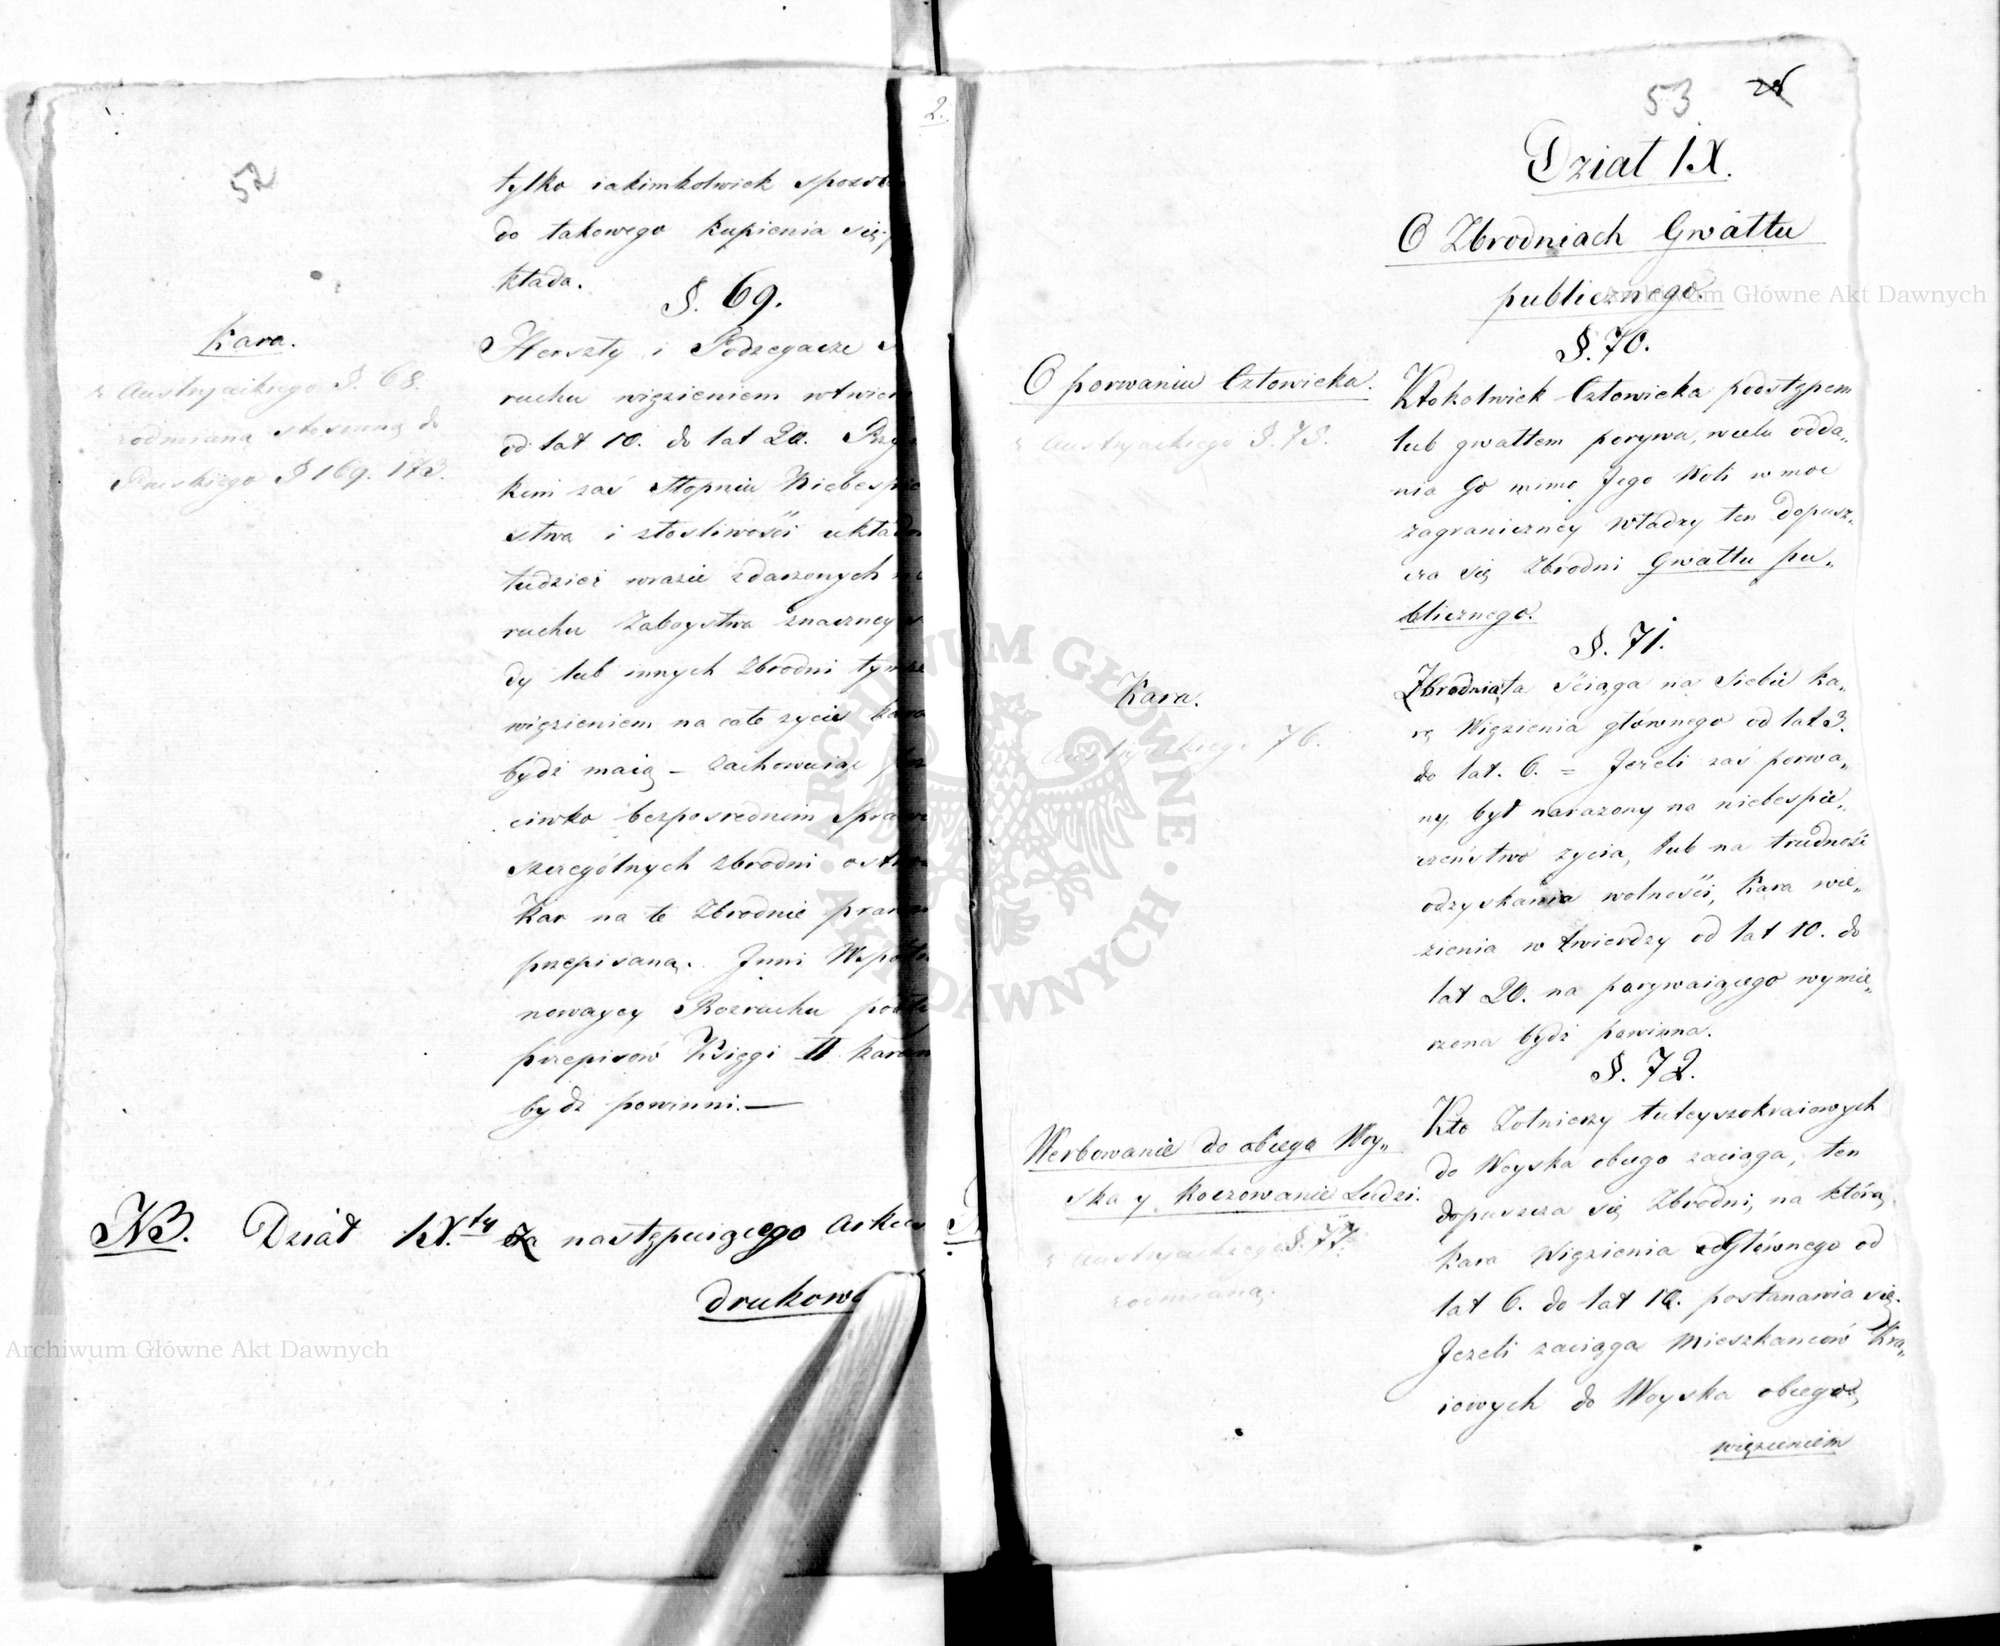 52
tylko iakimkolwiek sposob
do takowego kupienia się
kłada.
§. 69.
Kara.
z Austryackiego §. 68.
z odmianą stosowną do
Pruskiego § 169. 173.
Herszty i Podzegacze
ruchu więzieniem w twier
od lat 10. do lat 20. Przy
kim zaś Stopniu Niebespie
stwa i złosliwości układ
tudzież wrazie zdarzonych
ruchu Zaboystwa znaczney
dy lub innych Zbrodni tym
więzieniem na całe zycie kara
bydź maią – zachowuiąc
ciwko bezposrednim Spraw
szczególnych zbrodni ostr
Kar na te Zbrodnie praw
przepisaną. Inni Wspól
nowaycy Rozruchu podł
przepisów Księgi II karan
bydź powinni. —
NB. Dział IX.ty za następuiącego Arkus
drukow
2.
53
Dział IX.
O Zbrodniach Gwałtu
publicznego.
§. 70.
O porwaniu Człowieka.
z Austryackiego §. 75.
Ktokolwiek Człowieka podstępem
lub gwałtem porywa, wcelu odda„
nia Go mimo Jego Woli w moc
zagraniczney władzy ten dopusz„
cza się Zbrodni Gwałtu pu„
blicznego.
§. 71.
Kara.
Austryackiego 76.
Zbrodnia ta Ściąga na Siebie ka„
rę Więzienia głównego od lat 3.
do lat. 6. = Jeżeli zaś porwa„
ny był narazony na niebespie„
czeństwo zycia, lub na trudność
odzyskania wolności, Kara wię„
zienia w twierdzy od lat 10. do
lat 20. na porywaiącego wymie„
rzona bydź powinna.
§. 72.
Werbowanie do obcego Woy„
ska y Koczowanie Ludzi.
z Austryackiego §. 77.
z odmianą.
Kto Zołnierzy tuteyszokraiowych
do Woyska obcego zaciąga, ten
dopuszcza się Zbrodni, na którą
kara Więzienia Głównego od
lat 6. do lat 10. postanawia się.
Jezeli zaciąga Mieszkancow Kra„
iowych do Woyska obcego,
więzieniem
Archiwum Główne Akt Dawnych
Archiwum Główne Akt Dawnych
ARCHIWUM GŁÓWNE AKT DAWNYCH